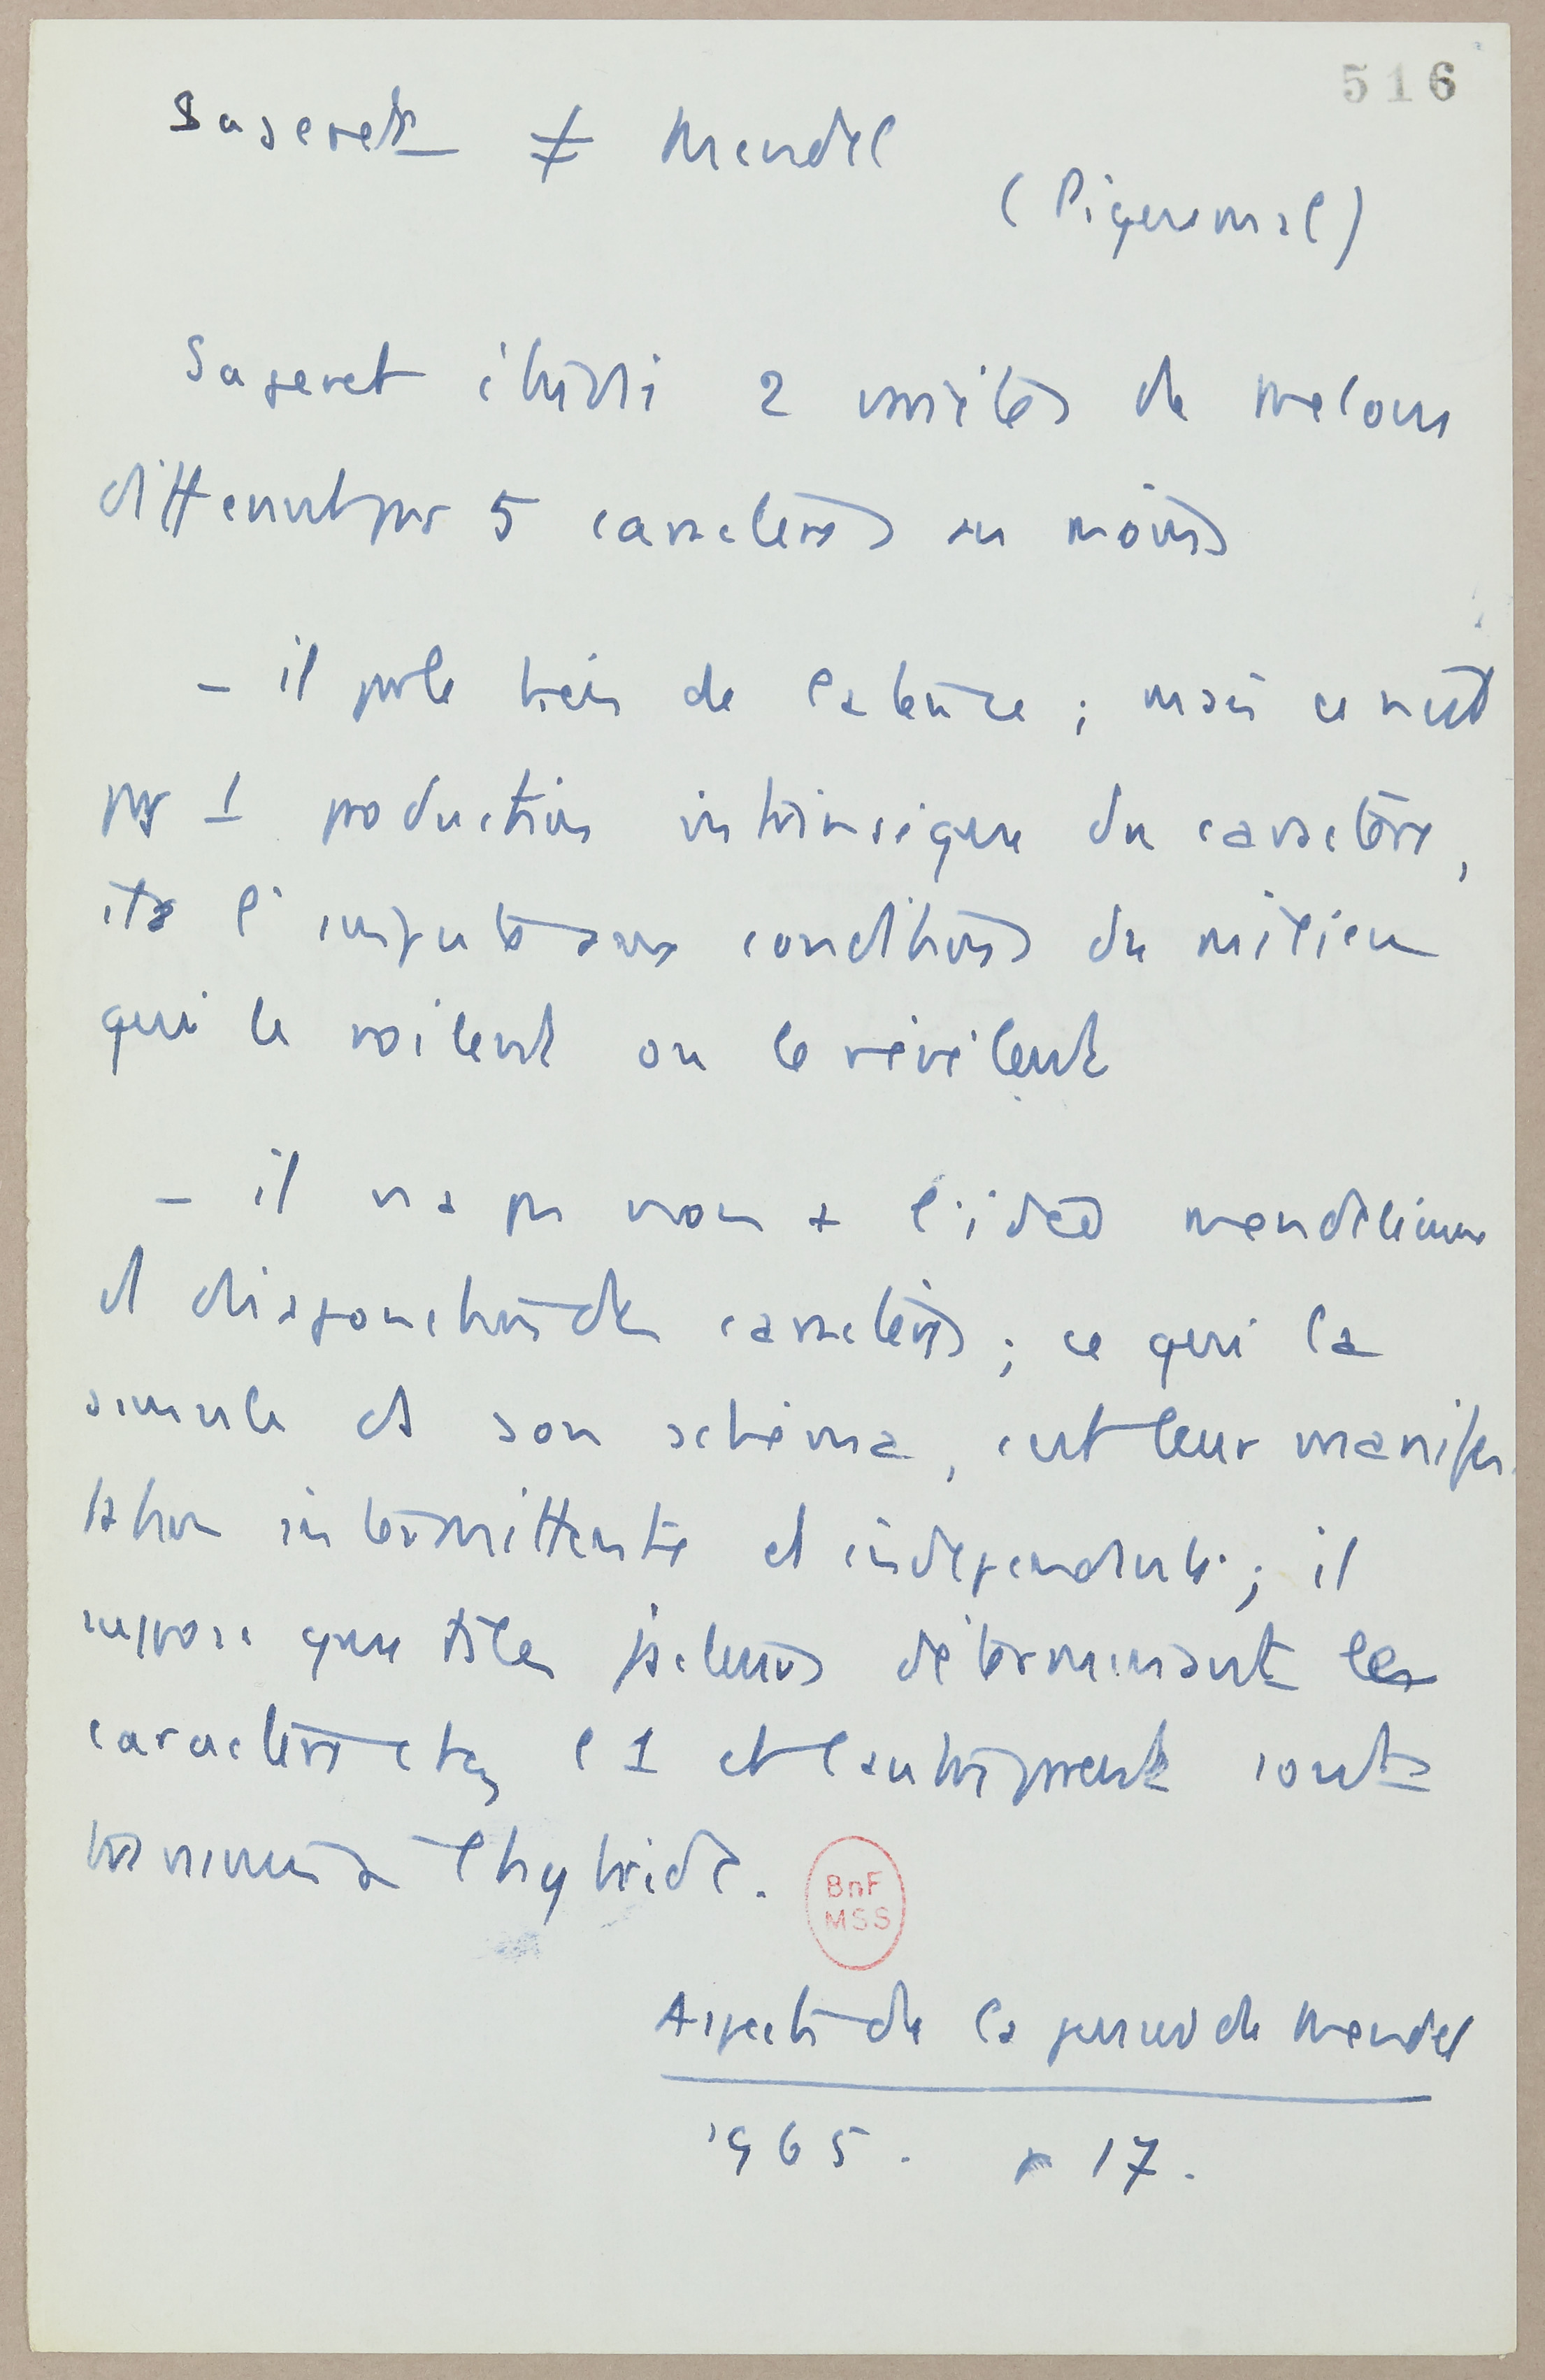 516
Sageret ≠ Mendel
(Piquemal)
Sageret étudie 2 variétés de melons
différent par 5 caractères au moins
- il parle bien de latence ; mais ce n'est
pas 1 production intrinsèque du caractère,
il l'impute aux conditions du milieu
qui le voilent ou le révèlent
- il n'a pas non + l'idée mendélienne
de disjonction des caractères ; ce qui la
simule ds son schéma, c'est leur manifes
tation intermittente et indépendante ; il
suppose que ts les facteurs déterminant les
caractères chez l'1 et l'autre parent sont
transmis à l'hybride.
BnF
MSS
Aspects de la pensée de Mendel
1965. p 17.